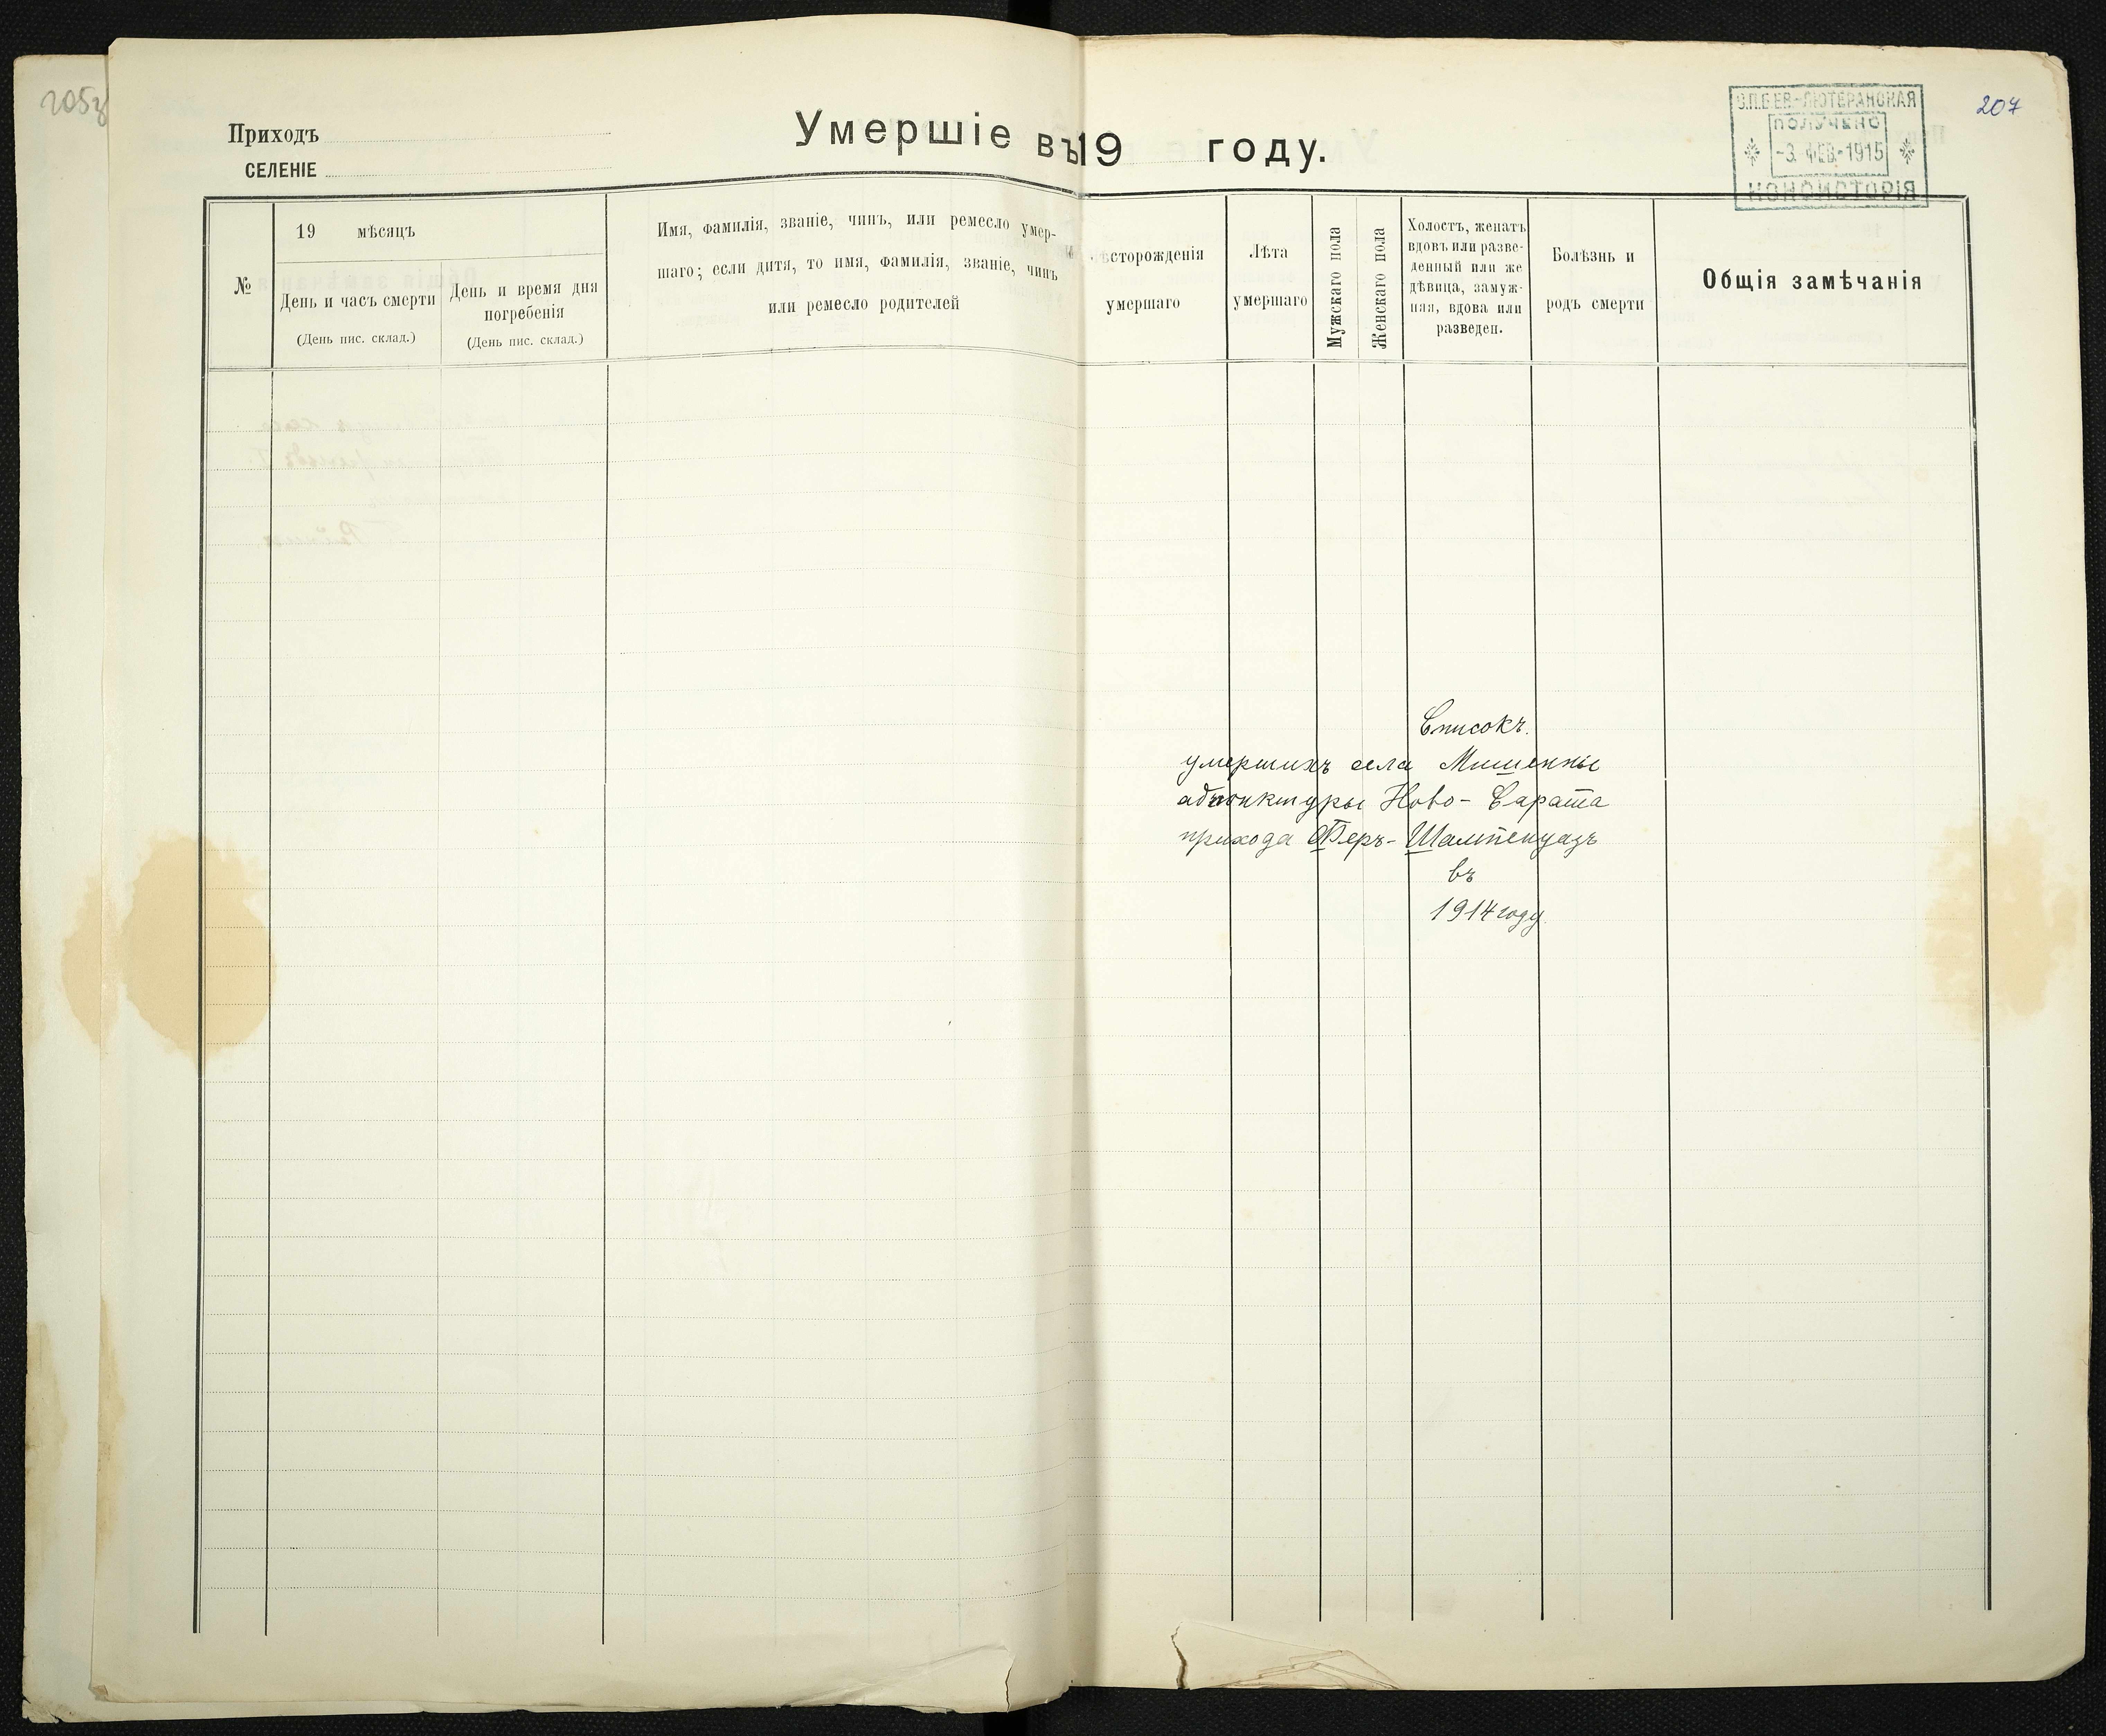 205з
Приходъ
СЕЛЕНІЕ
Умершіе въ 19 году.
С.П.Б ЕВ.-ЛЮТЕРАНСКАЯ
ПОЛУЧЕНО
-3. ФЕВ. 1915
КОНСИСТОРІЯ
207
№
19 мѣсяцъ
День и часъ смерти
(День пис. склад.)
День и время дня
погребенія
(День пис. склад.)
Имя, фамилія, званіе, чинъ, или ремесло умер-
шаго; если дитя, то имя, фамилія, званіе, чинъ
или ремесло родителей
ѣсторожденія
умершаго
Лѣта
умершаго
Мужскаго пола
Женскаго пола
Холостъ, женатъ
вдовъ или разве-
денный или же
дѣвица, замуж-
няя, вдова или
разведен.
Болѣзнь и
родъ смерти
Общія замѣчанія
Списокъ.
умершихъ села Мишенны
адъюнктуры Ново-Сарата
прихода Феръ-Шампенуазъ
въ
1914 году.